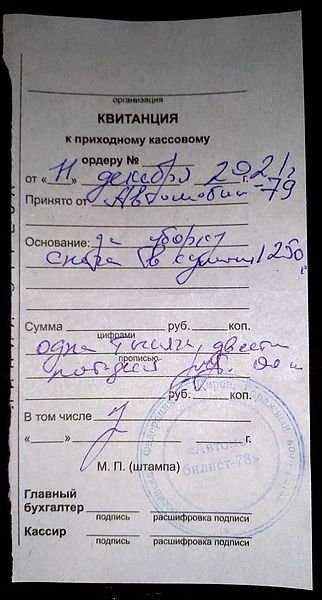 организация
КВИТАНЦИЯ
к приходному кассовому
ордеру №
от « 11 » декабря 2021 г.
Принято от Автомобил -79
Основание: за уборку
снега в сумме 1250
Сумма руб. коп.
цифрами
одна тысяча двести
прописью
руб.
руб. коп.
В том числе
« » г.
М. П. (штампа)
«Автомо-
билист-78»
Главный
бухгалтер
подпись расшифровка подписи
Кассир
подпись расшифровка подписи